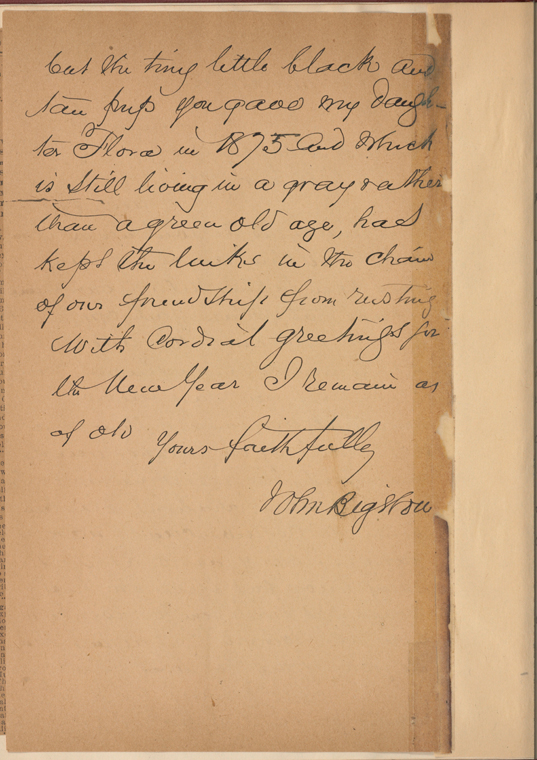 but the tiny little black and
tan pup you gave my daugh-
ter Flora in 1875 and which
is still living in a gray rather
than a green old age, has
kept the links in the chain
of our friendship from rusting
With Cordial greetings for
the New Year I remain as
of old
Yours faithfully
John Bigelow